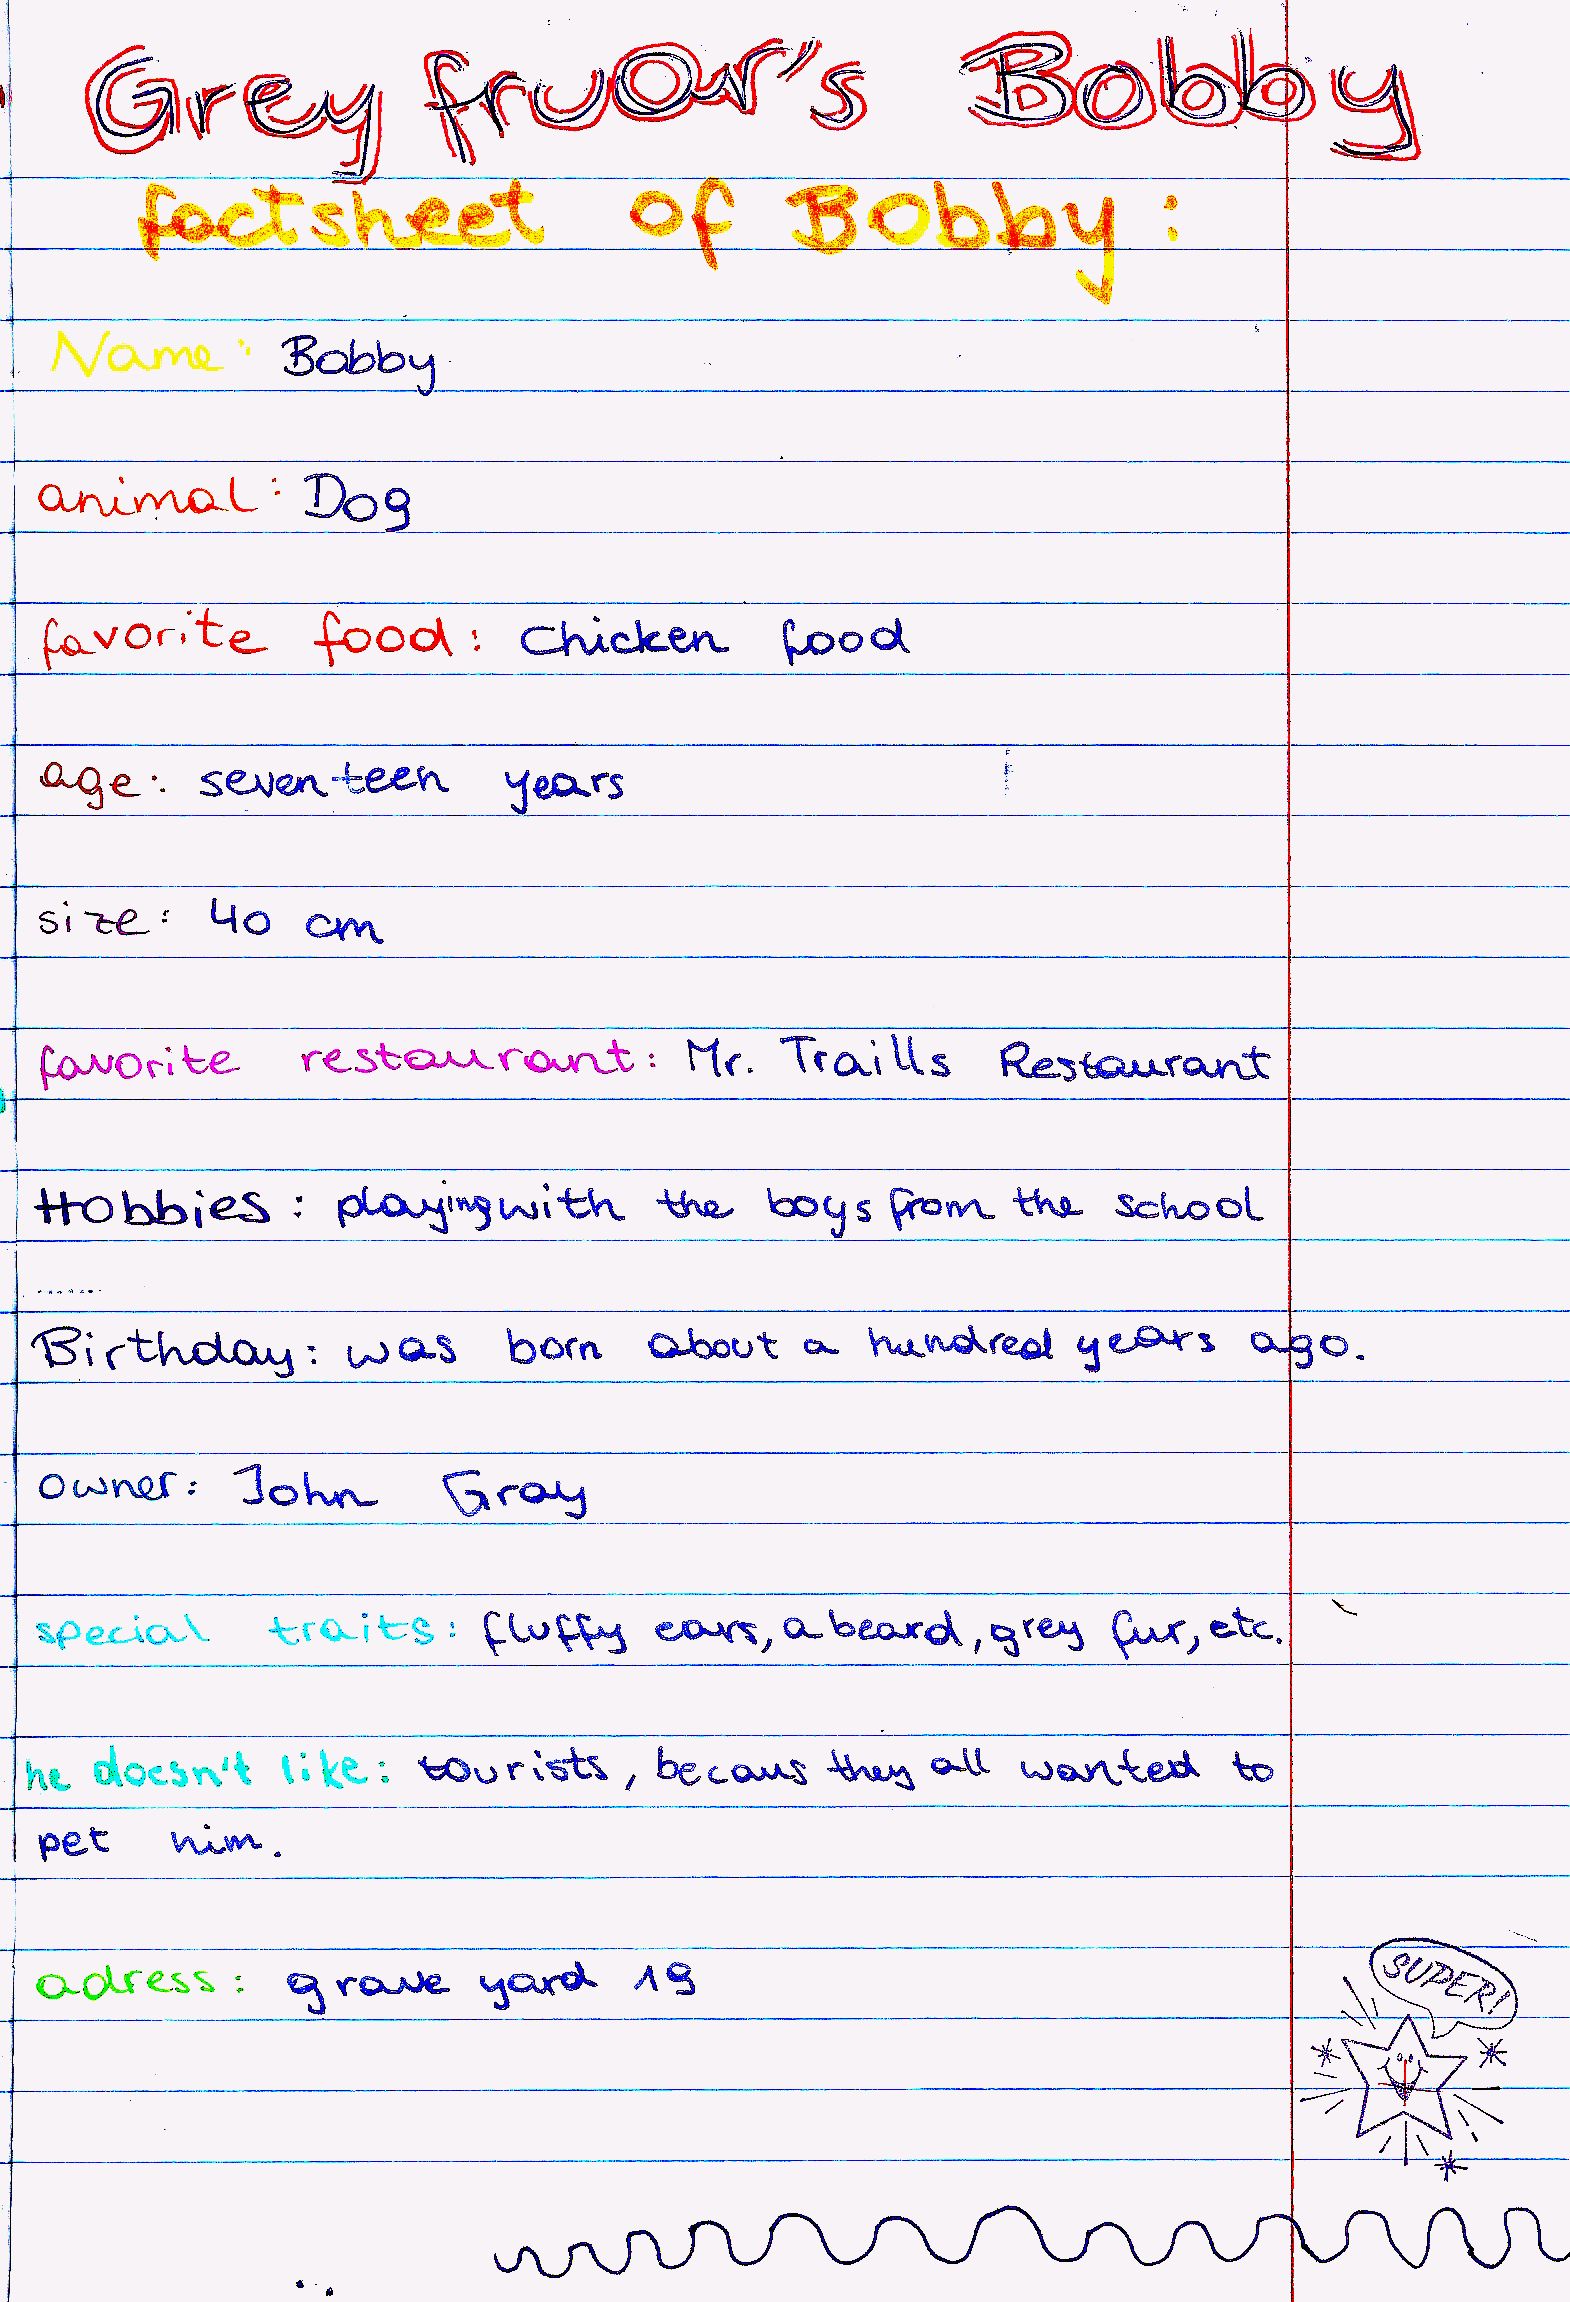 Grey fruar's Bobby
factsheet of Bobby:
Name: Bobby
animal: Dog
favorite food: Chicken food
age: seventeen years
size: 40 cm
favorite restaurant: Mr. Traills Restaurant
Hobbies: playing with the boys from the school
Birthday: was born about a hundred years ago.
owner: John Gray
special traits: fluffy ears, a beard, grey fur, etc.
he doesn't like: tourists, becaus they all wanted to
pet him.
adress: grave yard 19
SUPER!